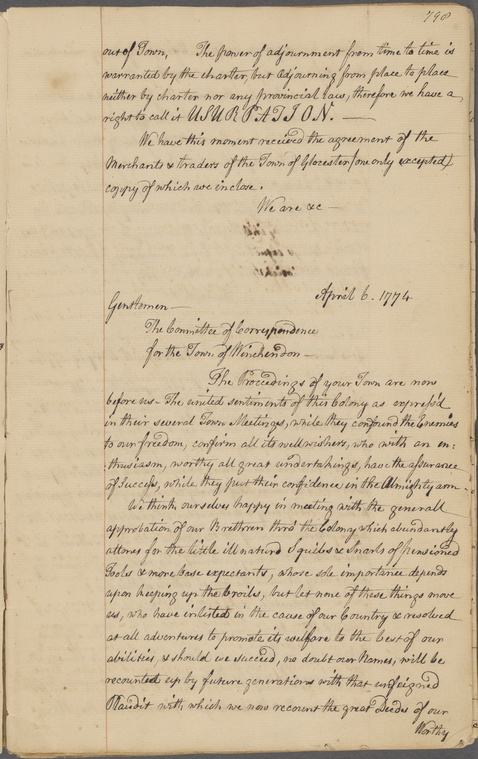 798
out of Town, The power of adjournment from time to time is
warranted by the charter, but adjourning from place to place
neither by charter nor any provincial law, therefore we have a
right to call it USURPATION. —
We have this moment received the agreement of the
Merchants & traders of the Town of Glocester (one only excepted)
coppy of which we inclose.
We are &c —
April 6. 1774
Gentlemen —
The Committee of Correspondence
for the Town of Winchendon —
The Proceedings of your Town are now
before us — The united sentiments of this Colony as express'd
in their several Town Meetings, while they confound the Enemies
to our freedom, confirm all its wellwishers, who with an en:
thusiasm, worthy all great undertakings, have the assurance
of Success, while they put their confidence in the Almighty arm
We think ourselves happy in meeting with the generall
approbation of our Brethren thro' the Colony which abundantly
attones for the little ill natur'd Squibs & Snarls of pensioned
Fools & more base expectants, whose sole importance depends
upon keeping up the broiles, but let none of these things move
us, who have inlisted in the cause of our Country & resolved
at all adventures to promote its welfare to the best of our
abilities, & should we succeed, no doubt our Names, will be
recounted up by future generations with that unfeigned
Plaudit with which we now recount the great Deeds of our
Worthy